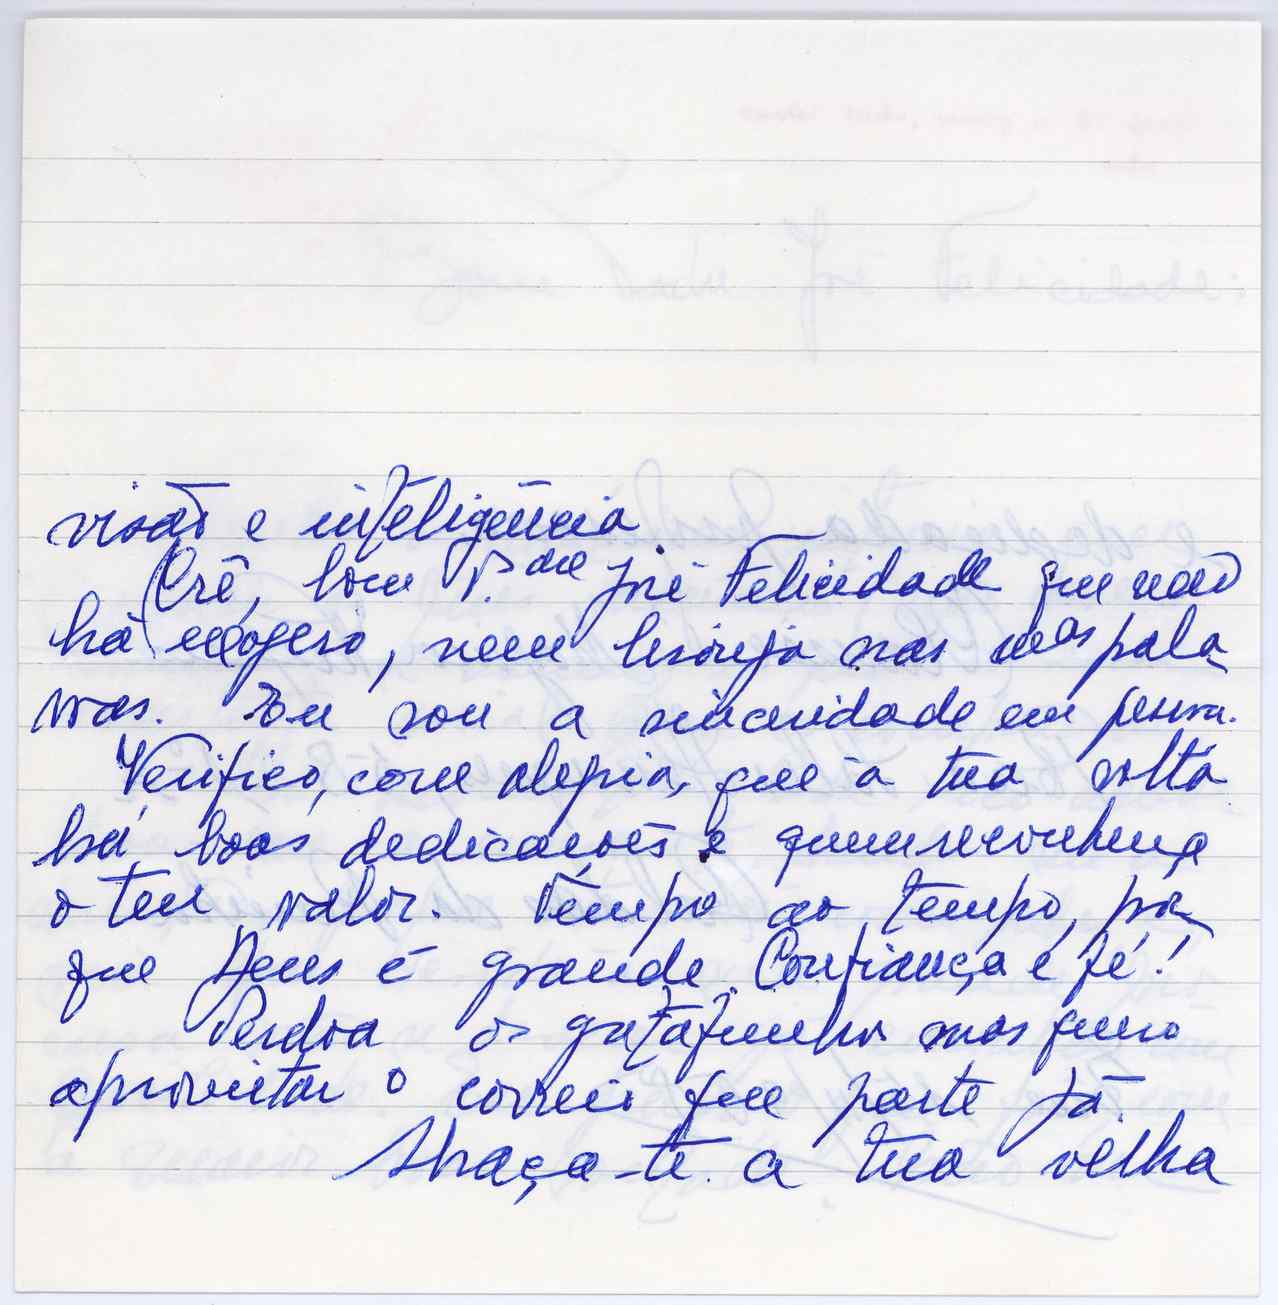 visão e inteligência
Crê, bom P.dre José Felicidade que não
há exagero, nem lisonja nas m.as pala
vras. Eu sou a sinceridade em pessoa.
Verifico, com alegria, que à tua volta
há boas dedicações e quem reconheça
o teu valor. Tempo ao tempo, por
que Deus é grande. Confiança e fé!
Perdoa os gatafunhos mas quero
aproveitar o correio que parte já.
Abraça-te a tua velha